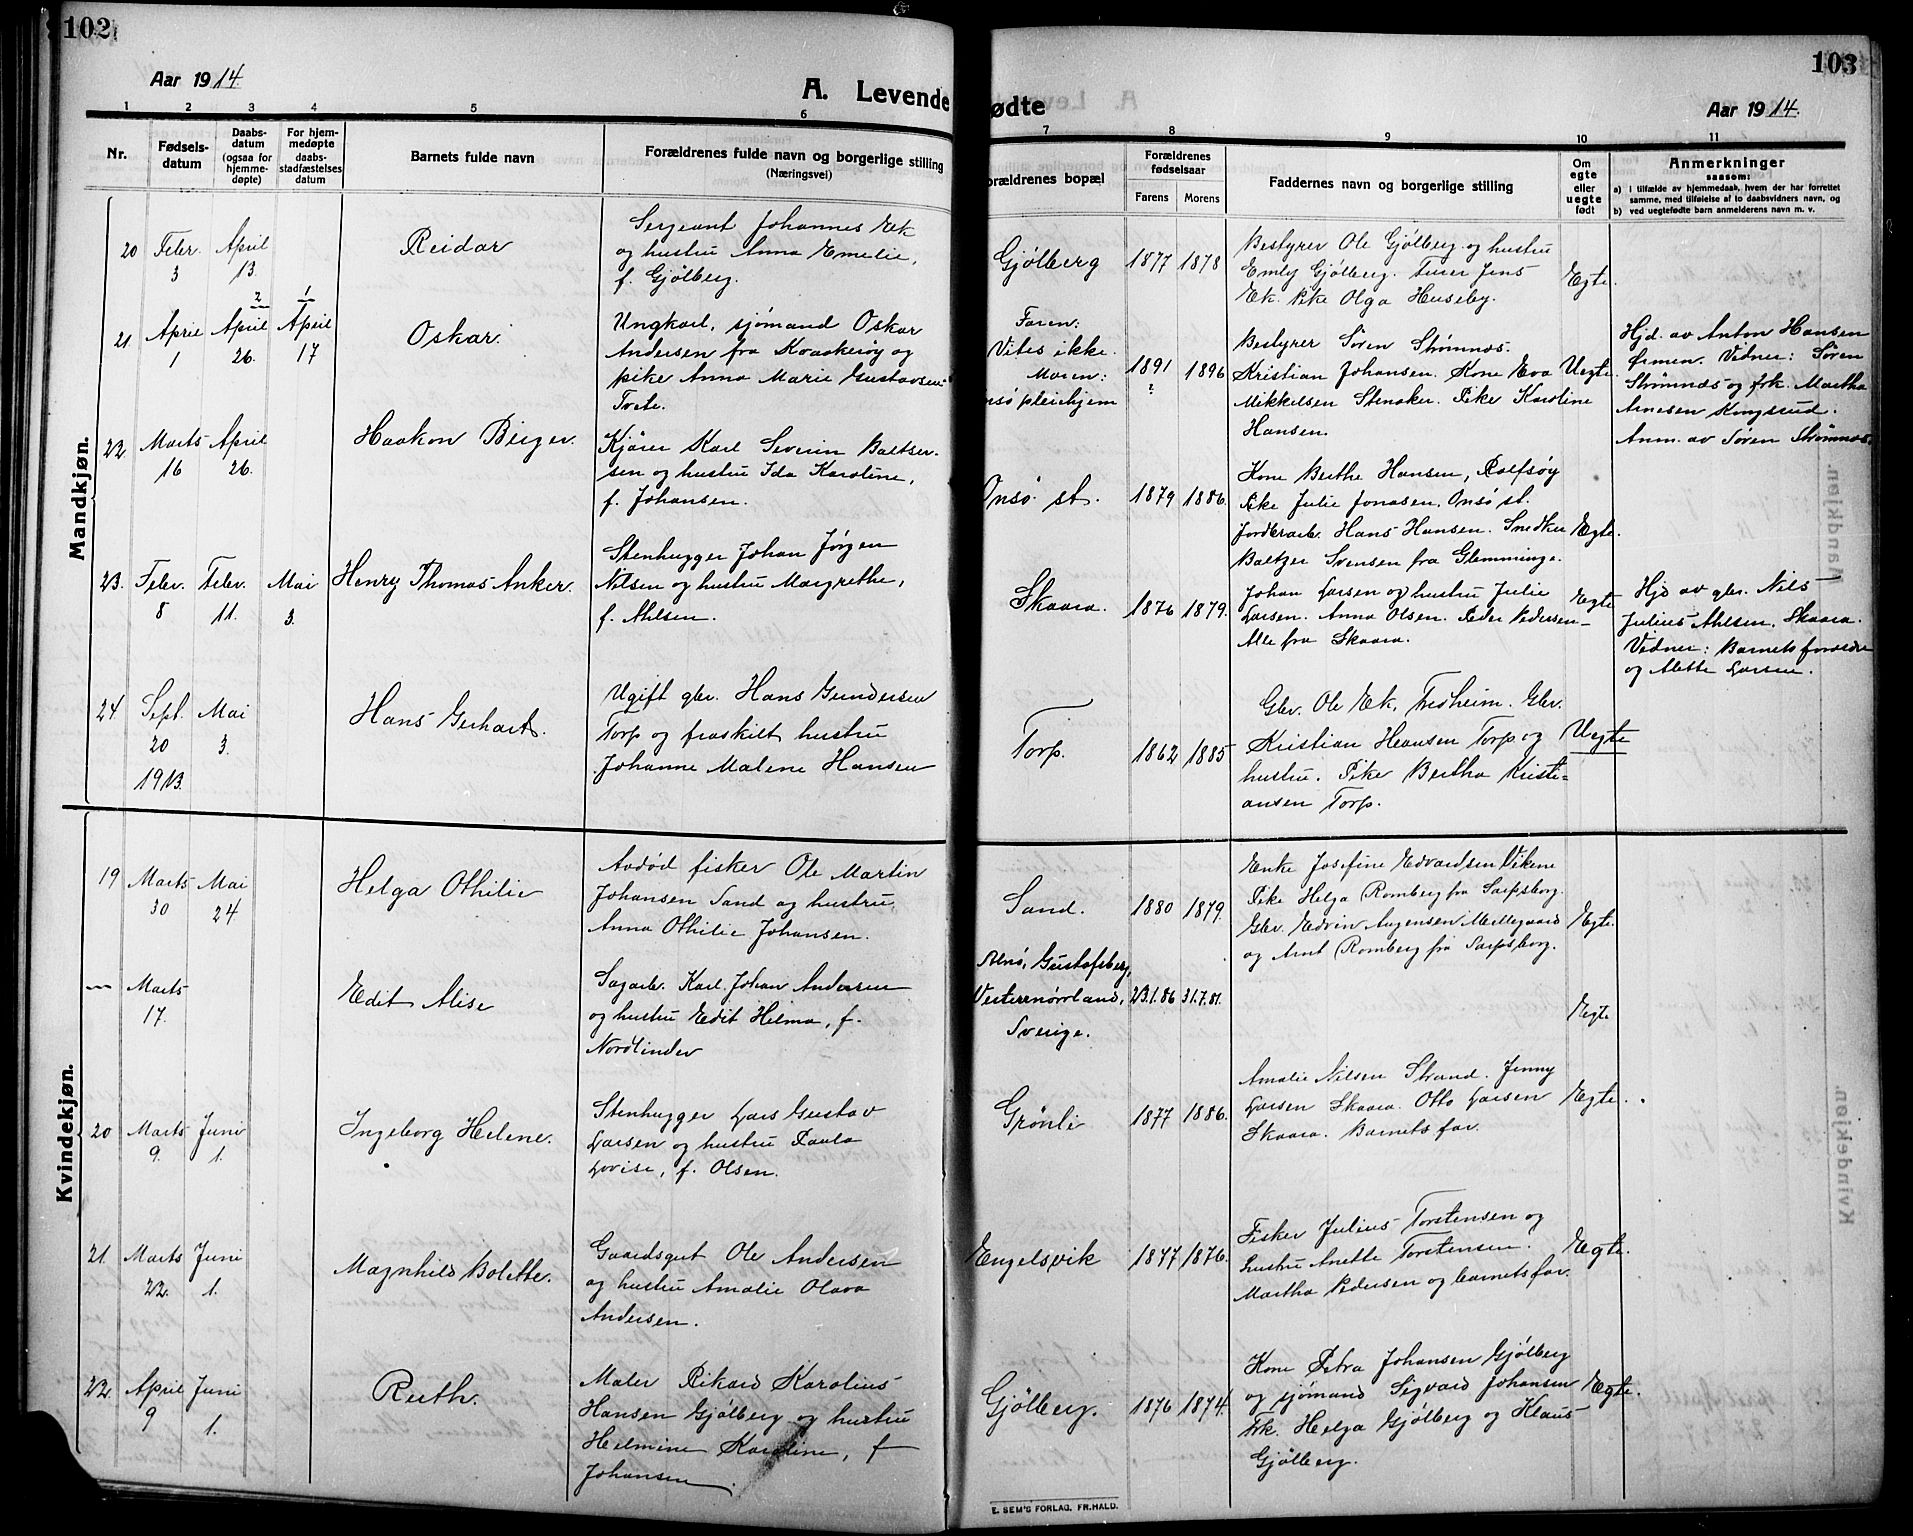 102
Aar 1914.
A. Levende
1 2 3 4 5 6
Nr.
Fødsels-
datum
Daabs-
datum
(ogsaa for
hjemme-
døpte)
For hjem-
medøpte
daabs-
stadfæstelses
datum
Barnets fulde navn
Forældrenes fulde navn og borgerlige stilling
(Næringsvei)
Mandkjøn.
20 Febr. 3 April 13.
Reidar
Sergeant Johannes Ek
og hustru Anna Emelie,
f. Gjølberg.
21. April 1 2 April 26. 1 April 17
Oskar.
Ungkarl, sjømand Oskar
Andersen fra Kraakerøy og
pike Anna Marie Gustavsen
Tvete.
22. Marts 16 April 26.
Haakon Birger.
Kjører Karl Severin Baltser-
sen og hustru Ida Karoline,
f. Johansen.
23. Febr. 8 Febr. 11. Mai 3.
Henry Thomas Anker.
Stenhugger Johan Jørgen
Nilsen og hustru Margrethe,
f. Ahlsen.
24 Sept. 20 1913. Mai 3.
Hans Gerhart.
Ugift gbr. Hans Gundersen
Torp og fraskilt hustru
Johanne Malene Hansen
Kvindekjøn.
19 Marts 30 Mai 24.
Helga Othilie
Avdød fisker Ole Martin
Johansen Sand og hustru,
Anna Othilie Johansen.
— Marts 17.
Edit Alise
Sagarb. Karl Johan Andersen
og hustru Edit Hilma, f.
Nordlinder
20 Marts 9. Juni 1.
Ingeborg Helene.
Stenhugger Lars Gustav
Larsen og hustru Paula
Lovise, f. Olsen.
21. Marts 22. Juni 1.
Magnhild Bolette.
Gaardsgut Ole Andersen
og hustru Amalie Olava
Andersen.
22. April 9 Juni 1.
Ruth.
Maler Rikard Karolius
Hansen Gjølberg og hustru
Helmine Karoline, f
Johansen.
103
ødte
Aar 1914.
7 8 9 10 11
orældrenes bopæl
Forældrenes
fødselsaar
Farens Morens
Faddernes navn og borgerlige stilling
Om
egte
eller
uegte
født
Anmerkninger
saasom:
a) i tilfælde av hjemmedaab, hvem der har forrettet
samme, med tilføielse af to daabsvidners navn, og
b) ved uegtefødte barn anmelderens navn m. v.
Gjølberg 1877 1878
Bestyrer Ole Gjølberg og hustru
Emly Gjølberg. Jens
Ek. Pike Olga Huseby.
Egte.
Faren:
Vites ikke.
Moren:
nsø pleiehjem
1891 ? 1896
Bestyrer Søren Strømnes.
Kristian Johansen. Kone Eva
Mikkelsen Stenaker. Pike Karoline
Hansen.
Uegte.
Hjd. av Anton Hansen
Ørmen. Vidner: Søren
Strømnæs og frk. Martha
Arnesen Kongsrud.
Anm. av Søren Strømnæs.
Onsø st. 1879 1886.
Kone Berthe Hansen, Rolfsøy
Pike Julie Jonasen, Onsø st.
Jordarb. Hans Hansen. Snedker
Baltzer Svensen fra Glemminge.
Egte.
Skaara. 1876 1879.
Johan Larsen og hustru Julie
Larsen. Anna Olsen. Peder Pedersen
Alle fra Skaara.
Egte
Hjd av gbr. Nils
Julius Ahlsen, Skaara.
Vidner: Barnets forældre
og Alette Larsen.
Torp. 1862 1885
Gbr. Ole Ek, Gbr.
Kristian Hansen Torp og
hustru. Pike Bertha Kristi-
ansen Torp.
Uegte
Sand. 1880 1879.
Enke Josefine Edvardsen Vikene
Pike Helga Romberg fra Sarpsborg.
Gbr. Edvin Augensen Mellegaard
og Arnt Romberg fra Sarpsborg.
Egte.
Alnö, Gustafsberg,
Vesternörrland,
Sverige.
23.1.86 31.7.87.
Egte
Grønli 1877 1886.
Amalie Nilsen Strand. Jenny
Larsen Skaara. Otto Larsen
Skaara. Barnets far.
Egte.
Engelsvik 1877 1876.
Fisker Julius Torstensen og
hustru Anette Torstensen.
Martha Pedersen og barnets far.
Egte.
Gjølberg. 1876 1874.
Kone Petra Johansen Gjølberg
og sjømand Sigvard Johansen
Frk. Helga Gjølberg og Klaus
Gjølberg.
Egte.
E. SEM'S FORLAG, FR.HALD.